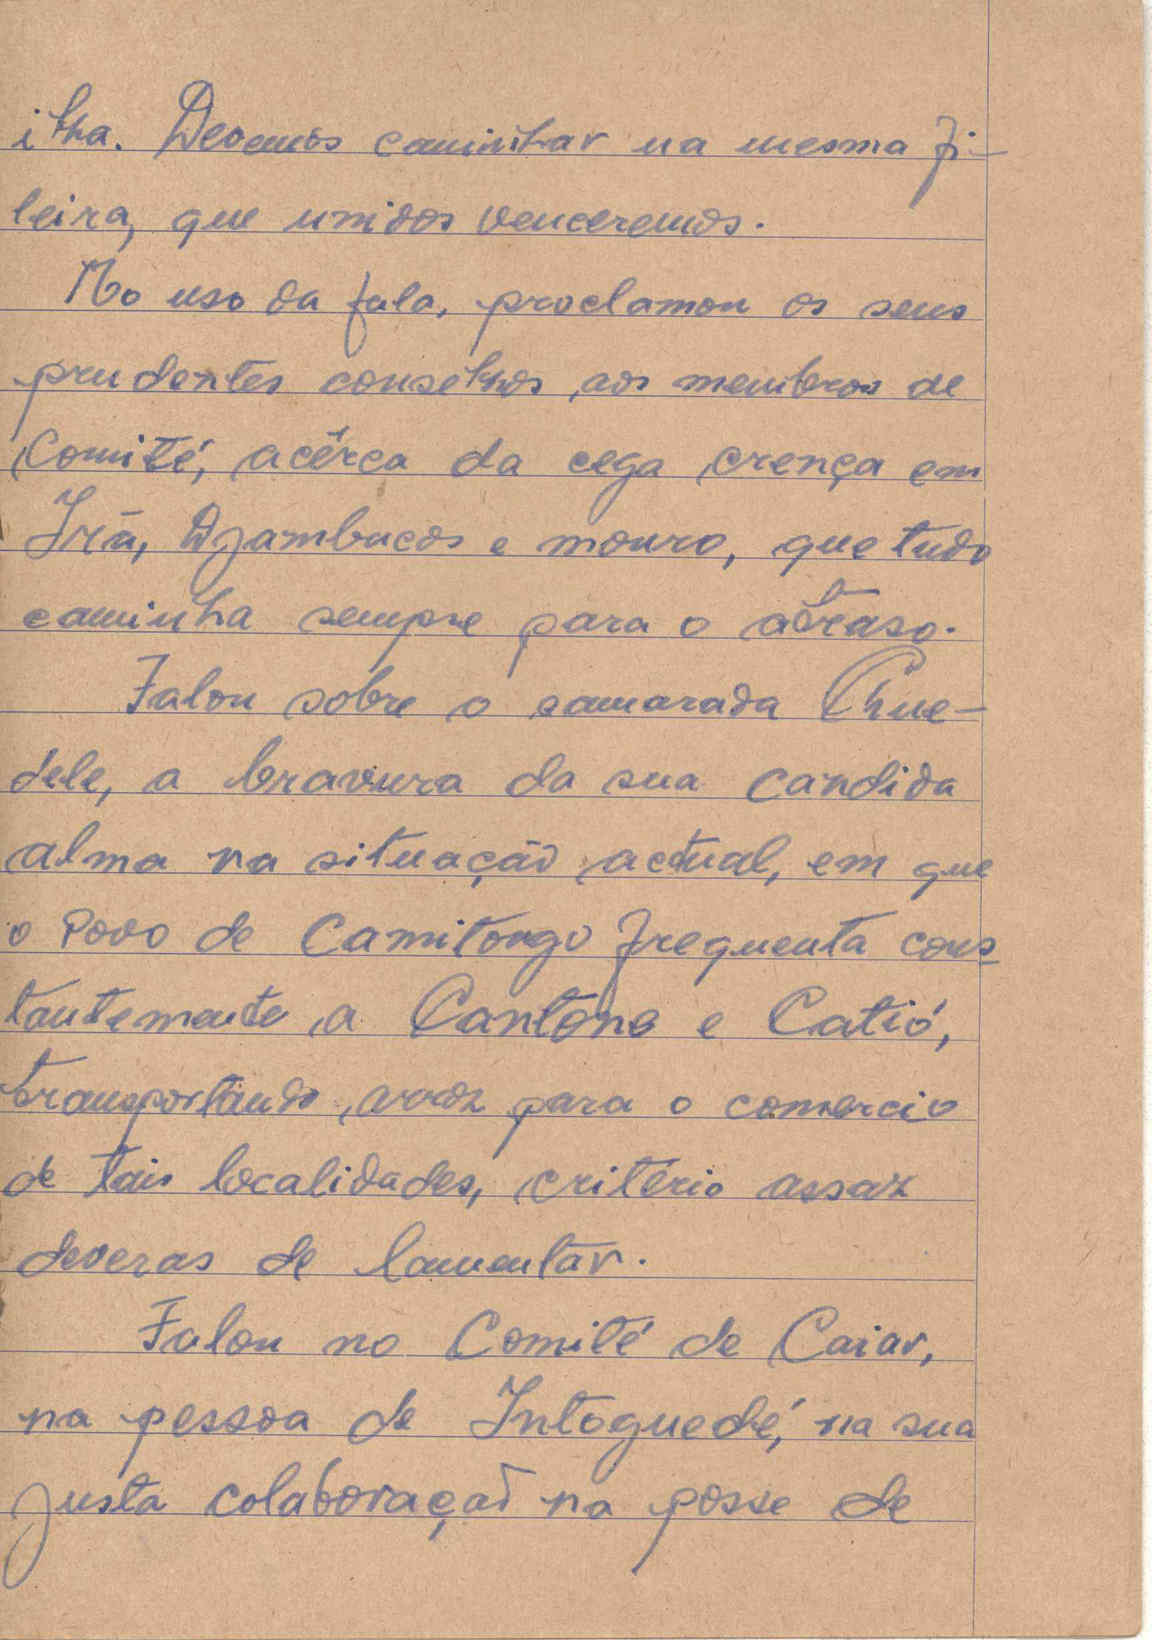 ilha. Devemos caminhar na mesma fi-
leira, que unidos venceremos.
No uso da fala, proclamou os seus
prudentes conselhos, aos membros de
Comité, acêrca da cega crença em
Irã, Djambacos e mouro, que tudo
caminha sempre para o atraso.
Falou sobre o camarada Chue-
dele, a bravura da sua candida
alma na situação actual, em que
o Povo de Camitongo frequenta cons-
tantemente a Cantone e Catió,
transportando, arroz para o comercio
de tais localidades, critério assaz
deveras de lamentar.
Falou no Comité de Caiar,
na pessoa de Intoguedé, na sua
justa colaboração na posse de